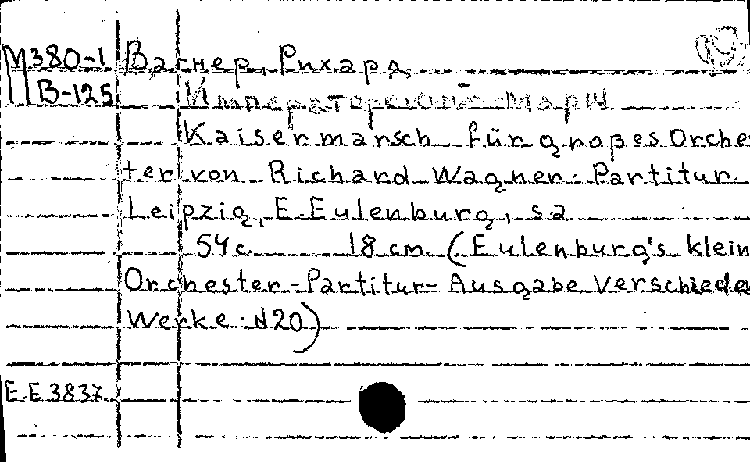 М380-1 Вагнер, Рихард
В-125 Императорский марш
Kaisermarsch für großes Orche
ter von Richard Wagner. Partitur.
Leipzig, E. Eulenburg, s a
54 c. 18 cm (Eulenburg's klein
Orchester-Partitur-Ausgabe Verschiede
Werke. N20)
E.E 3837